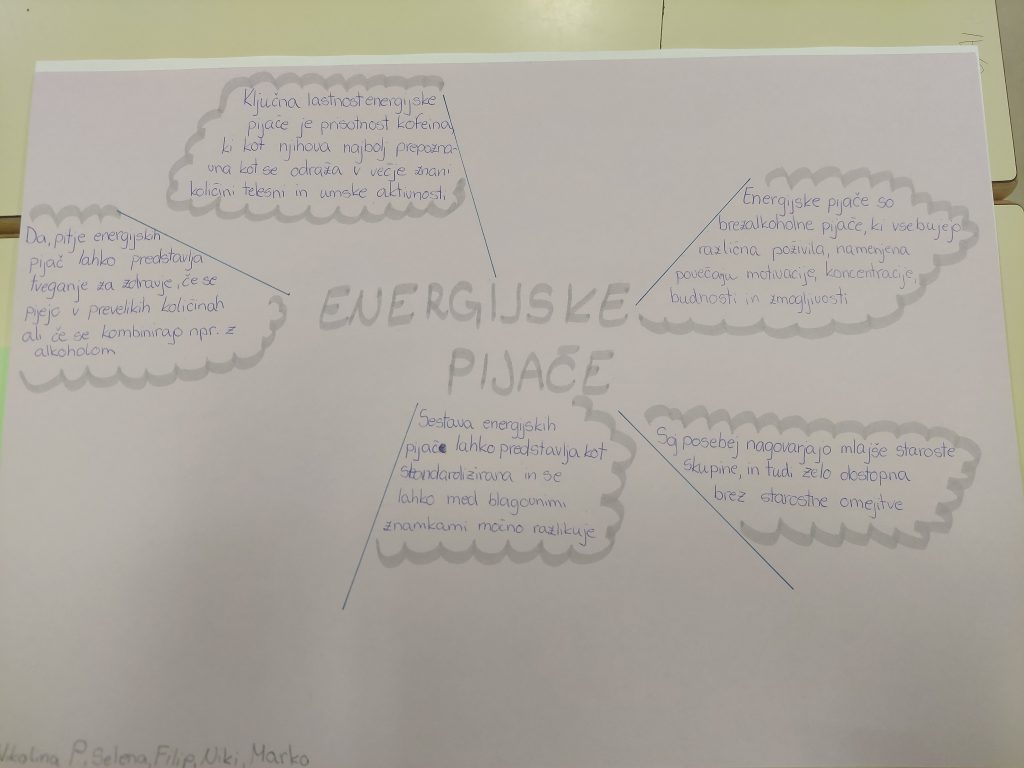 Ključna lastnost energijske
pijače je prisotnost kofeina,
ki kot njihova najbolj prepozna-
vna kot se odraža v večje žnani
količini telesni in umske aktivnosti.
Energijske pijače so
brezalkoholne pijače, ki vsebujejo
različna poživila, namenjena
povečaju motivacije, koncentracije,
budnosti in zmogljivosti
Da, pitje energijskih
pijač lahko predstavlja
tveganje za zdravje, če se
pijejo v prevelikih količinah
ali če se kombinirajo npr. z
alkoholom
ENERGIJSKE
PIJAČE
Sestava energijskih
pijače lahko predstavlja kot
standardizirana in se
lahko med blagovnimi
znamkami močno razlikuje
Saj posebej nagovarjajo mlajše staroste
skupine, in tudi zelo dostopna
brez starostne omejitve
Nikolina P, Selena, Filip, Niki, Marko